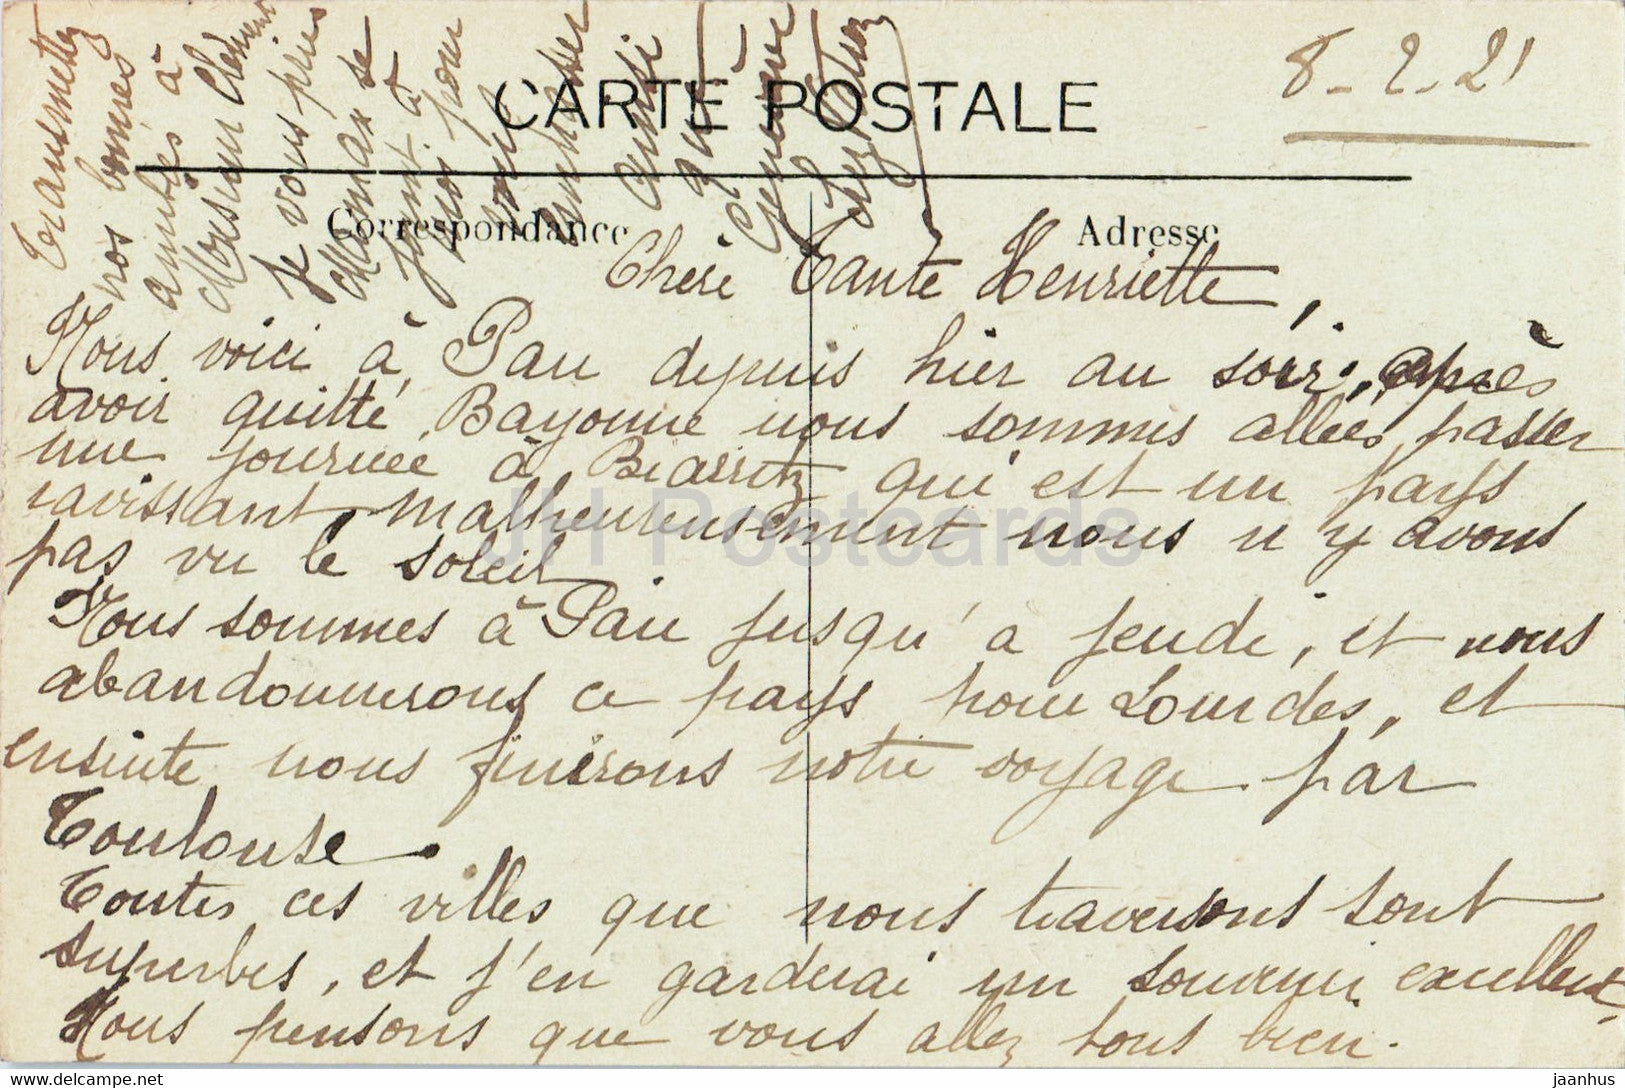 8-2-21
CARTE POSTALE
Correspondance
Adresse
Chère Tante Henriette,
Nous voici à Pau depuis hier au soir, après
avoir quitté Bayonne nous sommes allées passer
une journée à Biarritz qui est un pays
ravissant malheureusement nous n'y avons
pas vu le soleil
Nous sommes à Pau jusqu'à jeudi, et nous
abandonnerons ce pays pour Lourdes, et
ensuite nous finirons notre voyage par
Toulouse.
Toutes ces villes que nous traversons sont
superbes, et j'en garderai un souvenir excellent.
Nous pensons que vous allez tous bien.
Transmettez
nos bonnes
amitiés à
Monsieur Clément
Je vous prie
Maman se
joint à
moi pour
vous
embrasser
ainsi
que
Geneviève
JH Postcards
delcampe.net
jaanhus